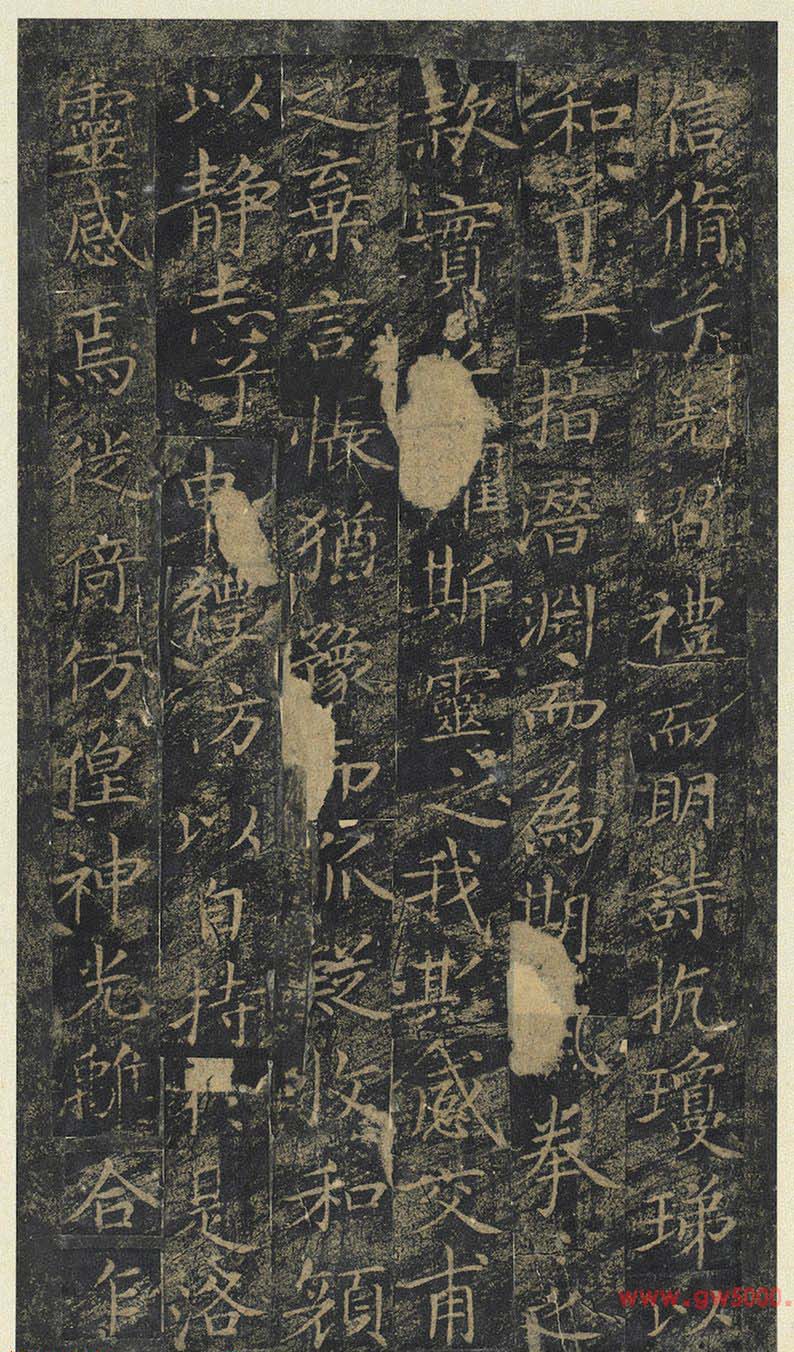 信脩兮羌習禮而明詩抗瓊珶以
和予兮指潛淵而為期拳〻之
款實斯靈之我欺感交甫
之棄言悵猶豫而狐疑收和顏
以静志兮申禮防以自持是洛
靈感焉徙倚仿偟神光離合乍
www.gw5000.